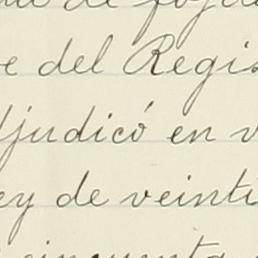 de foja
e del Regis
djudicó en v
ey de veinti
cincuenta